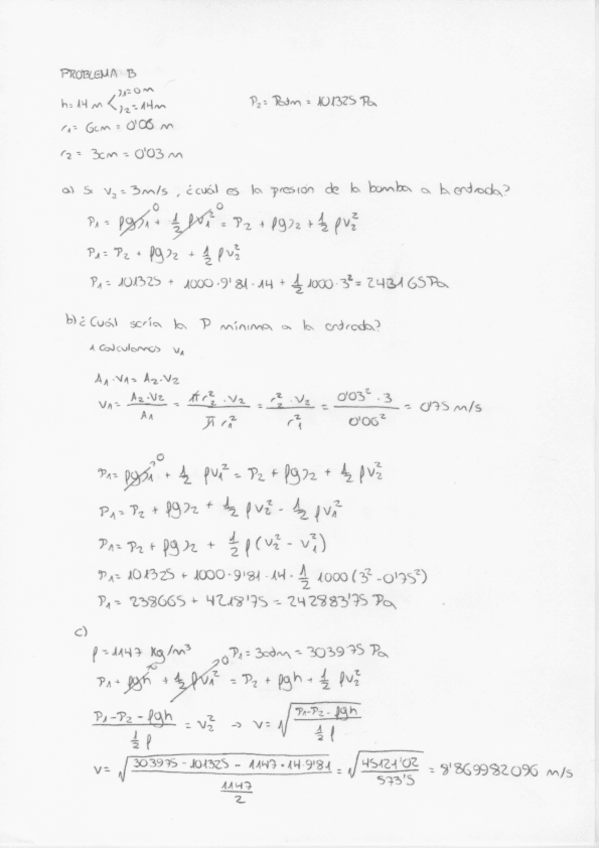 PROBLEMA B
h=14m < y1=0m
y2=14m
P2= Patm = 101325 Pa
r1= 6cm = 0'06 m
r2 = 3cm = 0'03 m
a) Si v2 = 3m/s, ¿cuál es la presión de la bomba a la entrada?
P1 + ρgy1 + 1/2 ρv1² = P2 + ρgy2 + 1/2 ρv2²
P1 = P2 + ρgy2 + 1/2 ρv2²
P1 = 101325 + 1000·9'81·14 + 1/2 1000·3² = 243165Pa
b) ¿Cuál sería la P mínima a la entrada?
1 Calculamos v1
A1·V1= A2·V2
V1 = A2·V2/A1 = π r2²·V2/π r1² = r2²·V2/r1² = 0'03²·3/0'06² = 0'75 m/s
P1= ρgy1 + 1/2 ρv1² = P2 + ρgy2 + 1/2 ρv2²
P1= P2 + ρgy2 + 1/2 ρv2² - 1/2 ρv1²
P1= P2 + ρgy2 + 1/2 ρ(v2² - v1²)
P1= 101325 + 1000·9'81·14·1/2 1000(3²-0'75²)
P1= 238665 + 4218'75 = 242883'75 Pa
c)
ρ = 1147 Kg/m³ P1= 3atm = 303975 Pa
P1 + ρgh + 1/2 ρv1² = P2 + ρgh + 1/2 ρv2²
P1-P2-ρgh / 1/2 ρ = v2² → v= √(P1-P2-ρgh / 1/2 ρ)
v= √(303975 - 101325 - 1147·14·9'81 / 1147/2) = √(45121'02 / 573'5) = 8'869982096 m/s